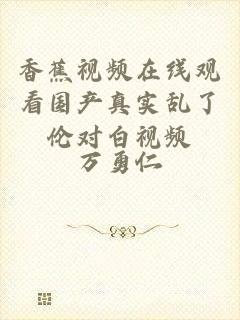 香蕉视频在线观
看国产真实乱了
伦对白视频
万勇仁